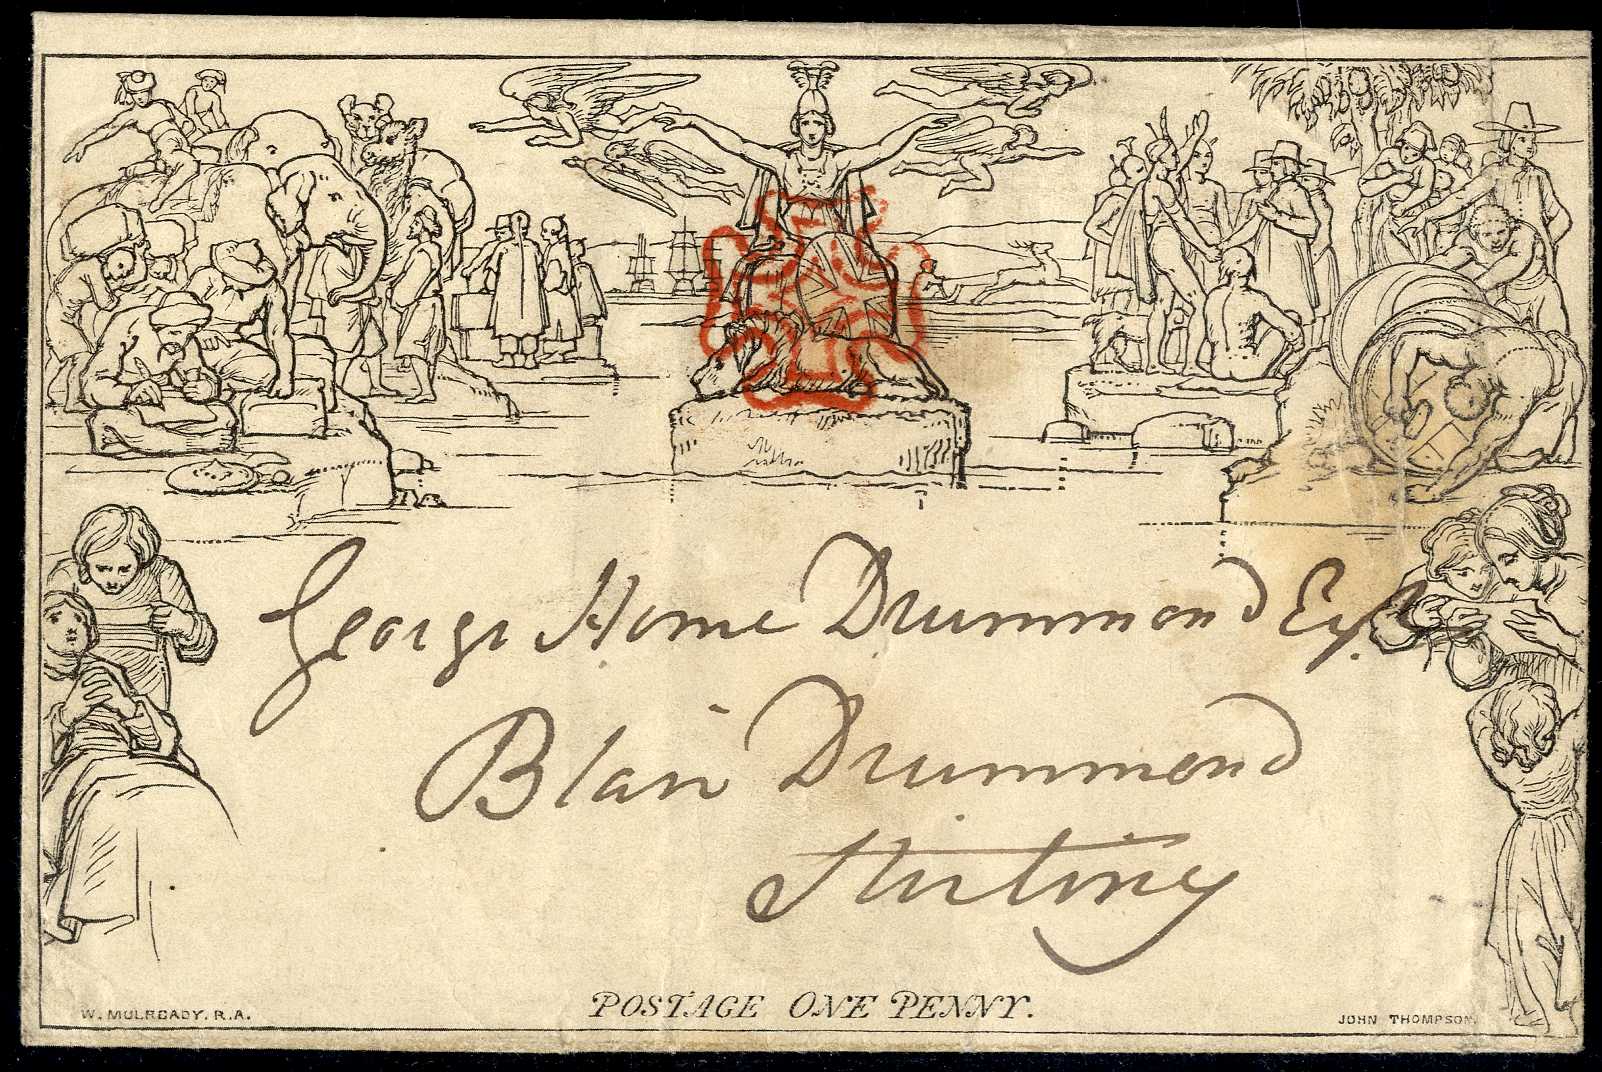 George Home Drummond Esqr
Blair Drummond
Stirling
POSTAGE ONE PENNY.
W. MULREADY. R.A.
JOHN THOMPSON.